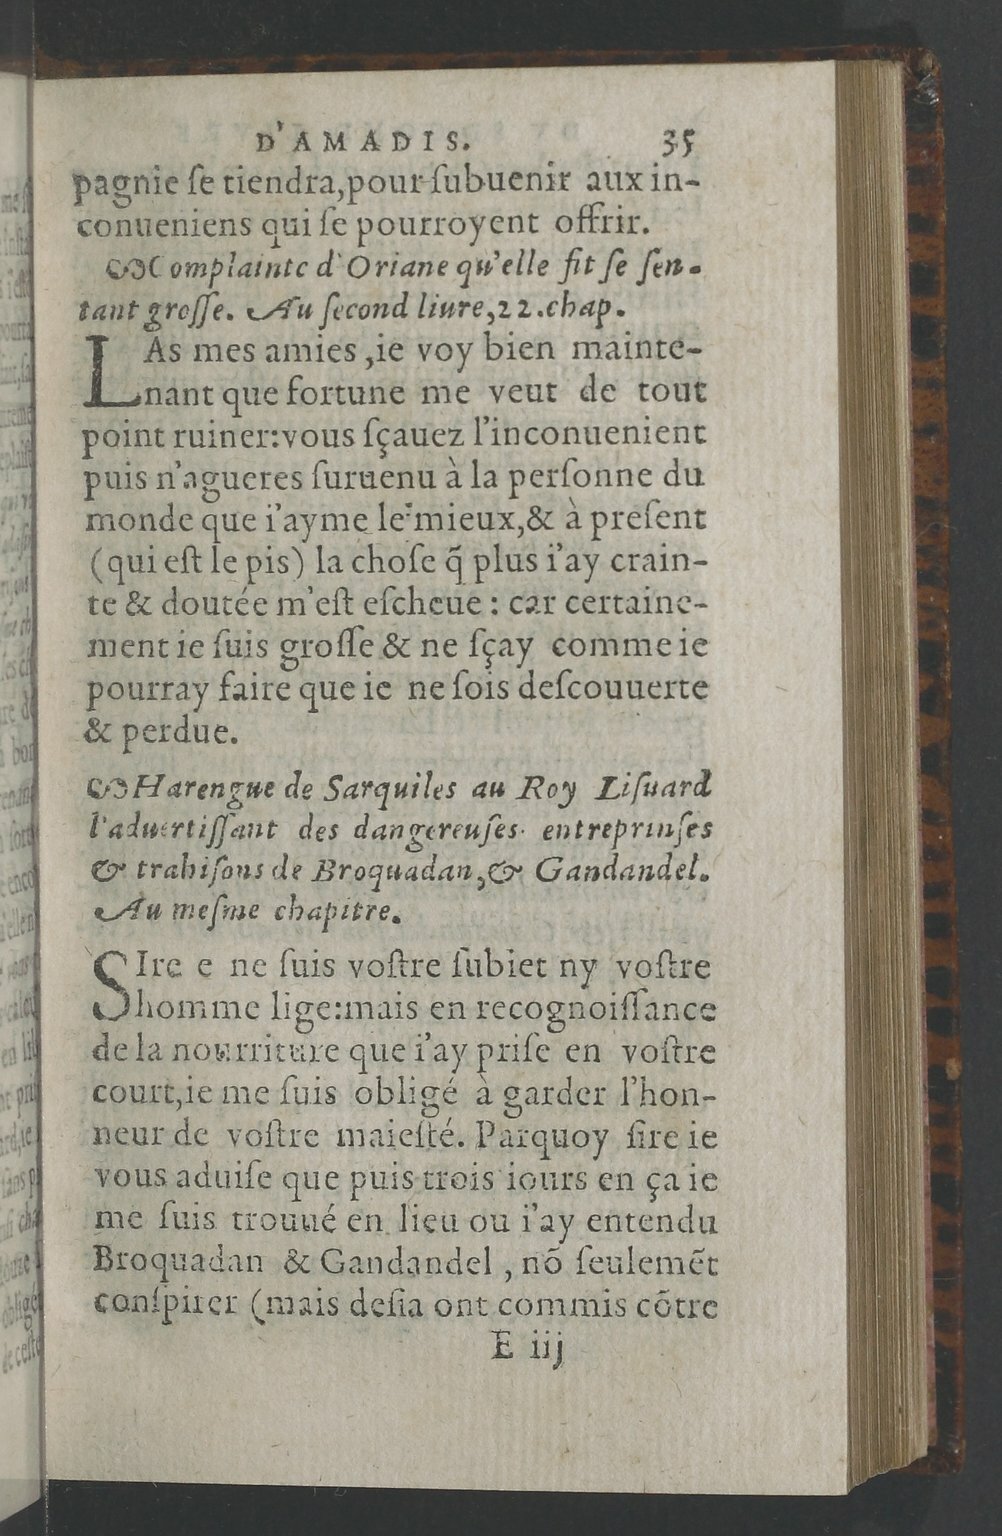 D'AMADIS. 35
pagnie ſe tiendra,pour ſubuenir aux in-
conueniens qui ſe pourroyent offrir.
Complainte d'Oriane qu'elle fit ſe ſen-
tant groſſe. Au ſecond liure,22.chap.
LAs mes amies ,ie voy bien mainte-
nant que fortune me veut de tout
point ruiner:vous ſçauez l'inconuenient
puis n'agueres ſuruenu à la perſonne du
monde que i'ayme le mieux,& à preſent
(qui eſt le pis) la choſe q̃ plus i'ay crain-
te & doutée m'eſt eſcheue : car certaine-
ment ie ſuis groſſe & ne ſçay comme ie
pourray faire que ie ne ſois deſcouuerte
& perdue.
Harengue de Sarquiles au Roy Liſuard
l'aduertiſſant des dangereuſes entreprinſes
& trahiſons de Broquadan,& Gandandel.
Au meſme chapitre.
SIre e ne ſuis voſtre ſubiet ny voſtre
homme lige:mais en recognoiſſance
de la nourriture que i'ay priſe en voſtre
court,ie me ſuis obligé à garder l'hon-
neur de voſtre maieſté. Parquoy ſire ie
vous aduiſe que puis trois iours en ça ie
me ſuis trouué en lieu ou i'ay entendu
Broquadan & Gandandel , nõ ſeulemẽt
conſpirer (mais deſia ont commis cõtre
E iij